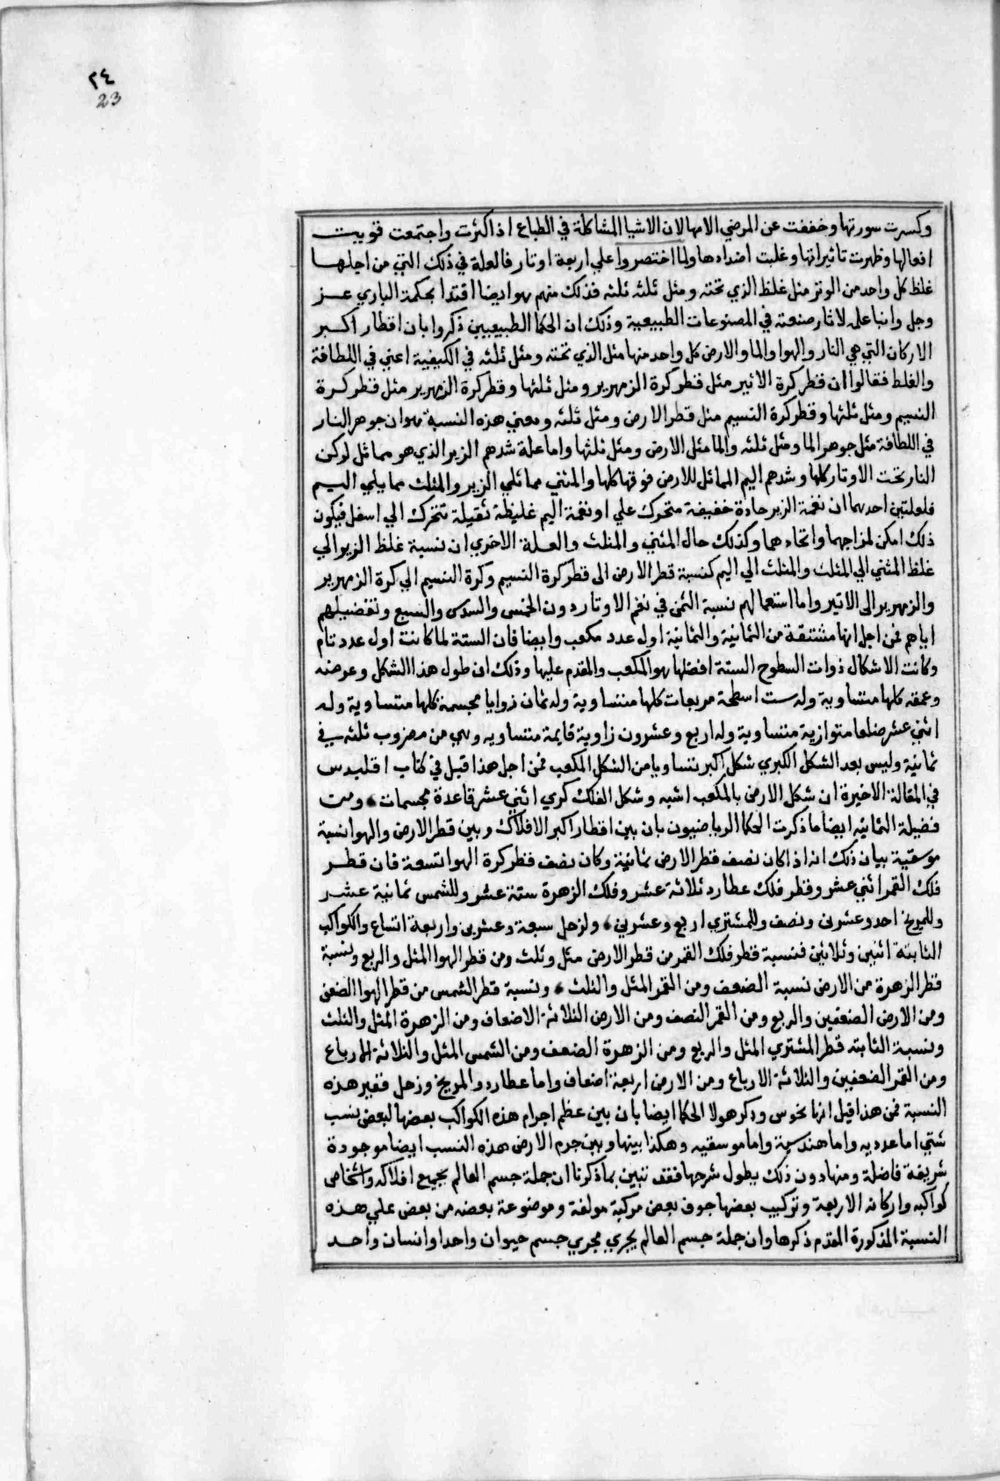 ٢٤
23
وكسرت سورتها وخففت عن المرضي الامها لان الاشيا المشاكلة في الطباع اذا كثرت واجتمعت قويت
افعالها وظهرت تاثيراتها وغلبت اضدادها ولما اختصروا علي اربعة اوتار فالعلة في ذلك التي من اجلها
غلظ كل واحد من الوتر مثل غلظ الذي تحته ومثل ثلثه ثلثه فذلك منهم هو ايضا اقتدا بحكمة الباري عز
وجل واتباعا لاثار صنعته في المصنوعات الطبيعية وذلك ان الحكما الطبيعيين ذكروا بان اقطار اكبر
الاركان التي هي النار والهوا والما والارض كل واحد منها مثل الذي تحته ومثل ثلثه في الكيفية اعني في اللطافة
والغلظ فقالوا ان قطر كرة الاثير مثل قطر كرة الزمهرير ومثل ثلثها وقطر كرة الزمهرير مثل قطر كرة
النسيم ومثل ثلثها وقطر كرة النسيم مثل قطر الارض ومثل ثلثه ومعني هذه النسبة هو ان جوهر النار
في اللطافة مثل جوهر الما ومثل ثلثه والما مثل الارض ومثل ثلثها واما علة شدهم الزير الذي هو مماثل لركن
النار تحت الاوتار كلها وشدهم اليم المماثل للارض فوقها كلها والمثني مما يلي الزير والمثلث مما يلي اليم
فلعلتين احدهما ان نغمة الزير حادة خفيفة متحرك علي او نغمة اليم غليظة ثقيلة تتحرك الي اسفل فيكون
ذلك امكن لمزاجهما واتحادهما وكذلك حال المثني والمثلث والعلة الاخري ان نسبة غلظ الزير الي
غلظ المثني الي المثلث والمثلث الي اليم كنسبة قطر الارض الي قطر كرة النسيم وكرة النسيم الي كرة الزمهرير
والزمهرير الي الاثير واما استعمالهم نسبة الثمن في نغم الاوتار دون الخمس والسدس والسبع وتفضيلهم
اياهم فمن اجل انها مشتقة من الثمانية والثمانية اول عدد مكعب وايضا فان الستة لما كانت اول عدد تام
وكانت الاشكال ذوات السطوح الستة افضلها هو المكعب والمقدم عليها وذلك ان طول هذا الشكل وعرضه
وعمقه كلها متساوية وله ست اسطحة مربعات كلها متساوية وله ثمان زوايا مجسمة كلها متساوية وله
اثني عشر ضلعا متوازية متساوية وله اربع وعشرون زاوية قايمة متساويه وهي من مضروب ثلثه في
ثمانية وليس بعد الشكل الكري شكل اكبر تساويا من الشكل المكعب فمن اجل هذا قيل في كتاب اقليدس
في المقالة الاخيرة ان شكل الارض بالمكعب اشبه وشكل الفلك كري اثني عشر قاعدة مجسمات ومن
فضيلة الثمانية ايضا ما ذكرت الحكما الرياضيون بان بين اقطار اكبر الافلاك وبين قطر الارض والهوا نسبة
موسقية بيان ذلك انه اذا كان نصف قطر الارض ثمانية وكان نصف قطر كرة الهوا تسعة فان قطر
فلك القمر اثني عشر وقطر فلك عطارد ثلاثة عشر وفلك الزهرة ستة عشر وللشمس ثمانية عشر
وللمريخ احد وعشرون ونصف وللمشتري اربع وعشرين ولزحل سبعة وعشرين واربعة اتساع والكواكب
الثابتة اثنين وثلاثين فنسبة قطر فلك القمر من قطر الارض مثل وثلث ومن قطر الهوا المثل والربع ونسبة
قطر الزهرة من الارض نسبة الضعف ومن القمر المثل والثلث ونسبة قطر الشمس من قطر الهوا الضعف
ومن الارض الضعفين والربع ومن القمر النصف ومن الارض الثلاثة الاضعاف ومن الزهرة المثل والثلث
ونسبة الثابته قطر المشتري المثل والربع ومن الزهرة الضعف ومن الشمس المثل والثلاثة الارباع
ومن القمر الضعفين والثلاثة الارباع ومن الارض اربعة اضعاف واما عطارد والمريخ وزحل فغير هذه
النسبة فمن هذا قيل انها نحوس وذكر هولا الحكما ايضا بان بين عظم اجرام هذه الكواكب بعضها لبعض نسب
شتي اما عدديه واما هندسية واما موسقيه وهكذا بينها وبين جرم الارض هذه النسب ايضا موجودة
شريفة فاضلة ومنها دون ذلك يطول شرحها فقد تبين بما ذكرنا ان جملة جسم العالم بجميع افلاكه واشخاص
كواكبه واركانه الاربعة وتركيب بعضها جوف بعض مركبة مولفة وموضوعة بعضه من بعض علي هذه
النسبة المذكورة المقدم ذكرها وان جملة جسم العالم يجري مجري جسم حيوان واحدا وانسان واحد